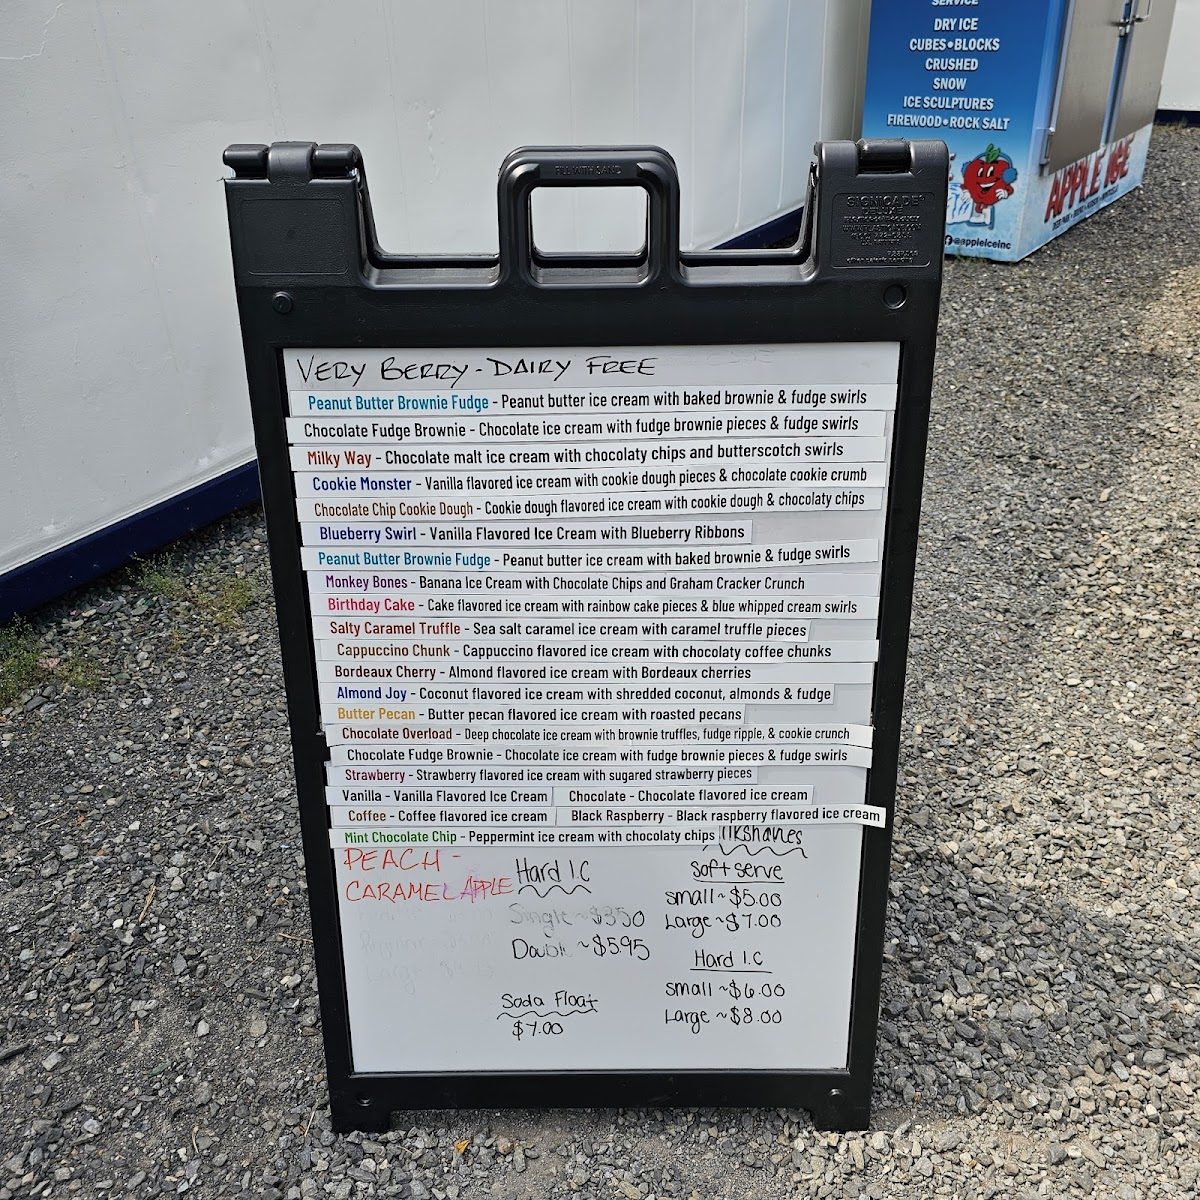 SERVICE
DRY ICE
CUBES•BLOCKS
CRUSHED
SNOW
ICE SCULPTURES
FIREWOOD•ROCK SALT
APPLE ICE
@appleiceinc
FILL WITH SAND
SIGNICADE
DELUXE
VERY BERRY - DAIRY FREE
Peanut Butter Brownie Fudge - Peanut butter ice cream with baked brownie & fudge swirls
Chocolate Fudge Brownie - Chocolate ice cream with fudge brownie pieces & fudge swirls
Milky Way - Chocolate malt ice cream with chocolaty chips and butterscotch swirls
Cookie Monster - Vanilla flavored ice cream with cookie dough pieces & chocolate cookie crumb
Chocolate Chip Cookie Dough - Cookie dough flavored ice cream with cookie dough & chocolaty chips
Blueberry Swirl - Vanilla Flavored Ice Cream with Blueberry Ribbons
Peanut Butter Brownie Fudge - Peanut butter ice cream with baked brownie & fudge swirls
Monkey Bones - Banana Ice Cream with Chocolate Chips and Graham Cracker Crunch
Birthday Cake - Cake flavored ice cream with rainbow cake pieces & blue whipped cream swirls
Salty Caramel Truffle - Sea salt caramel ice cream with caramel truffle pieces
Cappuccino Chunk - Cappuccino flavored ice cream with chocolaty coffee chunks
Bordeaux Cherry - Almond flavored ice cream with Bordeaux cherries
Almond Joy - Coconut flavored ice cream with shredded coconut, almonds & fudge
Butter Pecan - Butter pecan flavored ice cream with roasted pecans
Chocolate Overload - Deep chocolate ice cream with brownie truffles, fudge ripple, & cookie crunch
Chocolate Fudge Brownie - Chocolate ice cream with fudge brownie pieces & fudge swirls
Strawberry - Strawberry flavored ice cream with sugared strawberry pieces
Vanilla - Vanilla Flavored Ice Cream Chocolate - Chocolate flavored ice cream
Coffee - Coffee flavored ice cream Black Raspberry - Black raspberry flavored ice cream
Mint Chocolate Chip - Peppermint ice cream with chocolaty chips
PEACH -
CARAMEL APPLE
Hard I.C
Single ~ $3.50
Double ~ $5.95
Soda Float
$7.00
ilkshakes
Soft serve
small ~ $5.00
Large ~ $7.00
Hard I.C
small ~ $6.00
Large ~ $8.00